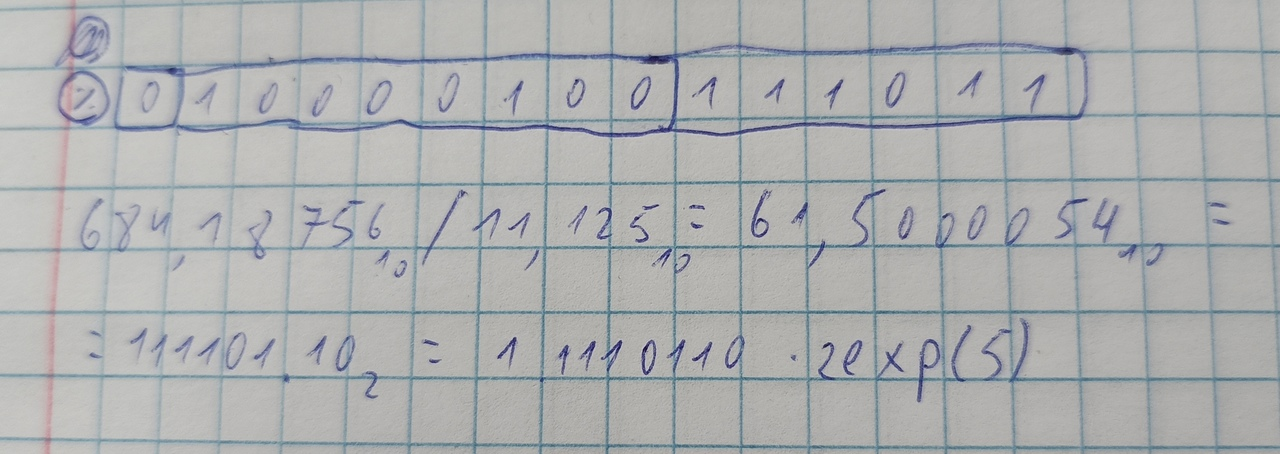 %. 0 1 0 0 0 0 1 0 0 1 1 1 0 1 1
684,18756₁₀ / 11,125₁₀ = 61,5000054₁₀ =
= 111101.10₂ = 1.1110110 · 2exp(5)